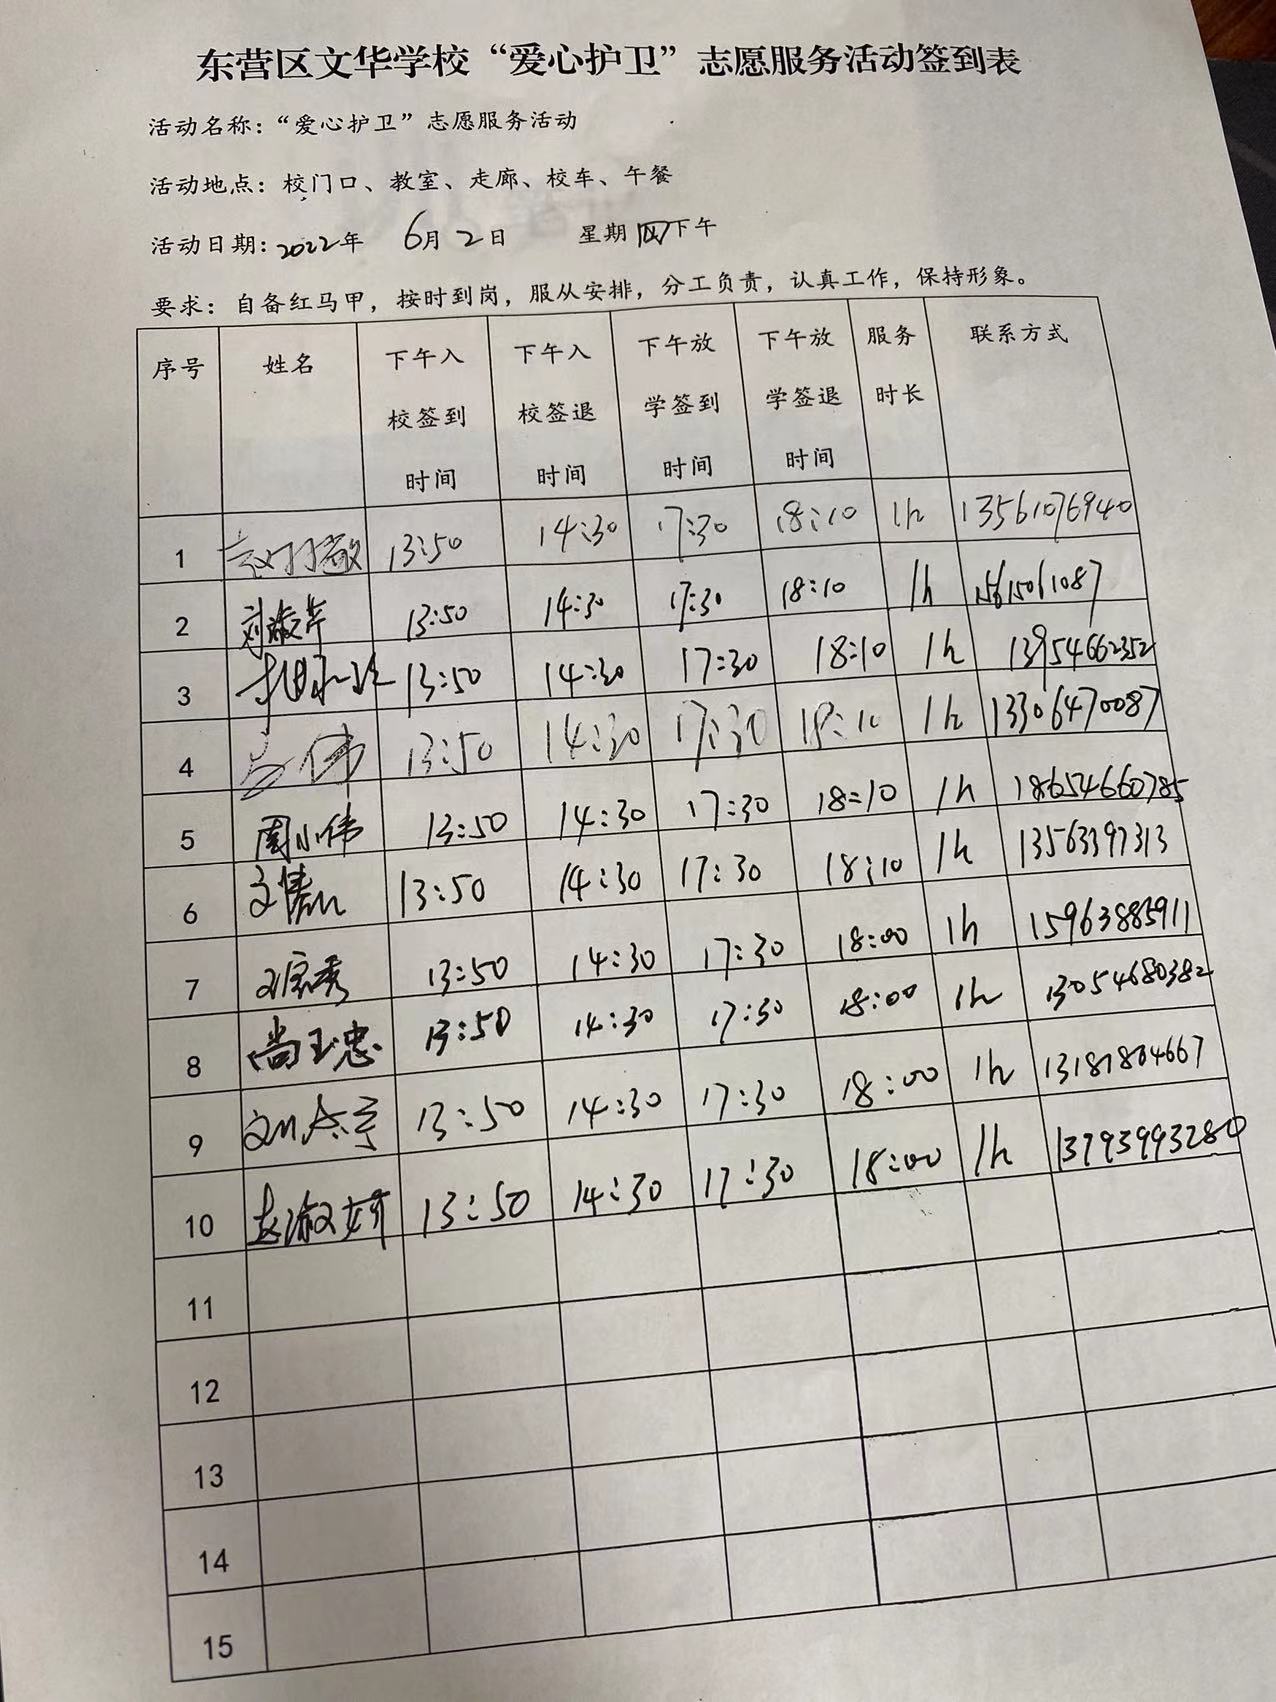 东营区文华学校“爱心护卫”志愿服务活动签到表
活动名称：“爱心护卫”志愿服务活动
活动地点：校门口、教室、走廊、校车、午餐
活动日期：2022年 6月2日 星期四下午
要求：自备红马甲，按时到岗，服从安排，分工负责，认真工作，保持形象。
序号 姓名 下午入校签到时间 下午入校签退时间 下午放学签到时间 下午放学签退时间 服务时长 联系方式
1 13:50 14:30 17:30 18:10 1h 13561076940
2 刘淑芹 13:50 14:30 17:30 18:10 1h 15615061087
3 13:50 14:30 17:30 18:10 1h 13954662352
4 13:50 14:30 17:30 18:10 1h 13306470087
5 周小伟 13:50 14:30 17:30 18:10 1h 18654660785
6 13:50 14:30 17:30 18:10 1h 13563397313
7 13:50 14:30 17:30 18:00 1h 15963885911
8 尚玉忠 13:50 14:30 17:30 18:00 1h 13054680382
9 13:50 14:30 17:30 18:00 1h 13181804667
10 赵淑娇 13:50 14:30 17:30 18:00 1h 13793993280
11
12
13
14
15